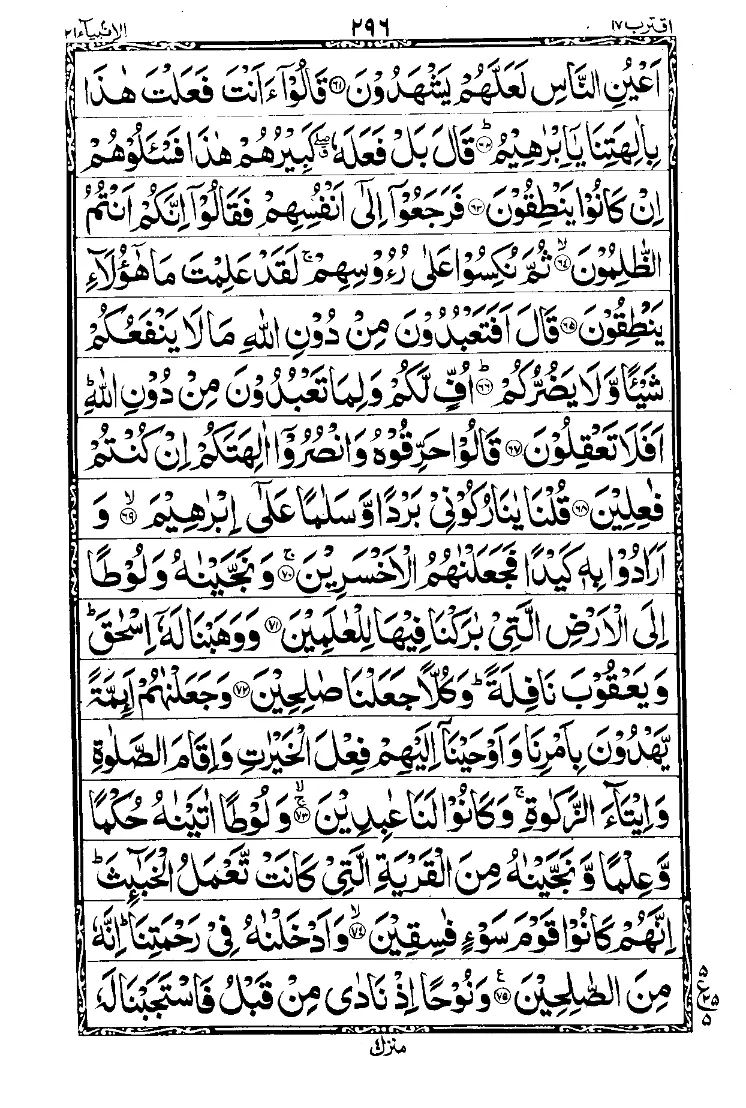 اقترب ١٧ ٢٩٦ الانبیآء ٢١
اَعْيُنِ النَّاسِ لَعَلَّهُمْ يَشْهَدُوْنَ ۝٦١ قَالُوْٓا ءَاَنْتَ فَعَلْتَ هٰذَا
بِاٰلِهَتِنَا يٰٓاِبْرٰهِيْمُ ۝٦٢ؕ قَالَ بَلْ فَعَلَهٗ ۖۗ كَبِيْرُهُمْ هٰذَا فَسْـَٔلُوْهُمْ
اِنْ كَانُوْا يَنْطِقُوْنَ ۝٦٣ فَرَجَعُوْٓا اِلٰٓى اَنْفُسِهِمْ فَقَالُوْٓا اِنَّكُمْ اَنْتُمُ
الظّٰلِمُوْنَ ۝٦٤ۙ ثُمَّ نُكِسُوْا عَلٰى رُءُوْسِهِمْ ۚ لَقَدْ عَلِمْتَ مَا هٰٓؤُلَآءِ
يَنْطِقُوْنَ ۝٦٥ قَالَ اَفَتَعْبُدُوْنَ مِنْ دُوْنِ اللّٰهِ مَا لَا يَنْفَعُكُمْ
شَيْـًٔا وَّلَا يَضُرُّكُمْ ۝٦٦ؕ اُفٍّ لَّكُمْ وَلِمَا تَعْبُدُوْنَ مِنْ دُوْنِ اللّٰهِ ؕ
اَفَلَا تَعْقِلُوْنَ ۝٦٧ قَالُوْا حَرِّقُوْهُ وَانْصُرُوْٓا اٰلِهَتَكُمْ اِنْ كُنْتُمْ
فٰعِلِيْنَ ۝٦٨ قُلْنَا يٰنَارُ كُوْنِيْ بَرْدًا وَّسَلٰمًا عَلٰٓى اِبْرٰهِيْمَ ۝٦٩ۙ وَ
اَرَادُوْا بِهٖ كَيْدًا فَجَعَلْنٰهُمُ الْاَخْسَرِيْنَ ۝٧٠ۚ وَنَجَّيْنٰهُ وَلُوْطًا
اِلَى الْاَرْضِ الَّتِيْ بٰرَكْنَا فِيْهَا لِلْعٰلَمِيْنَ ۝٧١ وَوَهَبْنَا لَهٗٓ اِسْحٰقَ ؕ
وَيَعْقُوْبَ نَافِلَةً ؕ وَكُلًّا جَعَلْنَا صٰلِحِيْنَ ۝٧٢ وَجَعَلْنٰهُمْ اَئِمَّةً
يَّهْدُوْنَ بِاَمْرِنَا وَاَوْحَيْنَآ اِلَيْهِمْ فِعْلَ الْخَيْرٰتِ وَاِقَامَ الصَّلٰوةِ
وَاِيْتَآءَ الزَّكٰوةِ ۚ وَكَانُوْا لَنَا عٰبِدِيْنَ ۝٧٣ۚۙ وَلُوْطًا اٰتَيْنٰهُ حُكْمًا
وَّعِلْمًا وَّنَجَّيْنٰهُ مِنَ الْقَرْيَةِ الَّتِيْ كَانَتْ تَّعْمَلُ الْخَبٰٓئِثَ ؕ
اِنَّهُمْ كَانُوْا قَوْمَ سَوْءٍ فٰسِقِيْنَ ۝٧٤ۙ وَاَدْخَلْنٰهُ فِيْ رَحْمَتِنَا ؕ اِنَّهٗ
مِنَ الصّٰلِحِيْنَ ۝٧٥ع وَنُوْحًا اِذْ نَادٰى مِنْ قَبْلُ فَاسْتَجَبْنَا لَهٗ
٥ ع ٢٥ ٥
منزل ٤